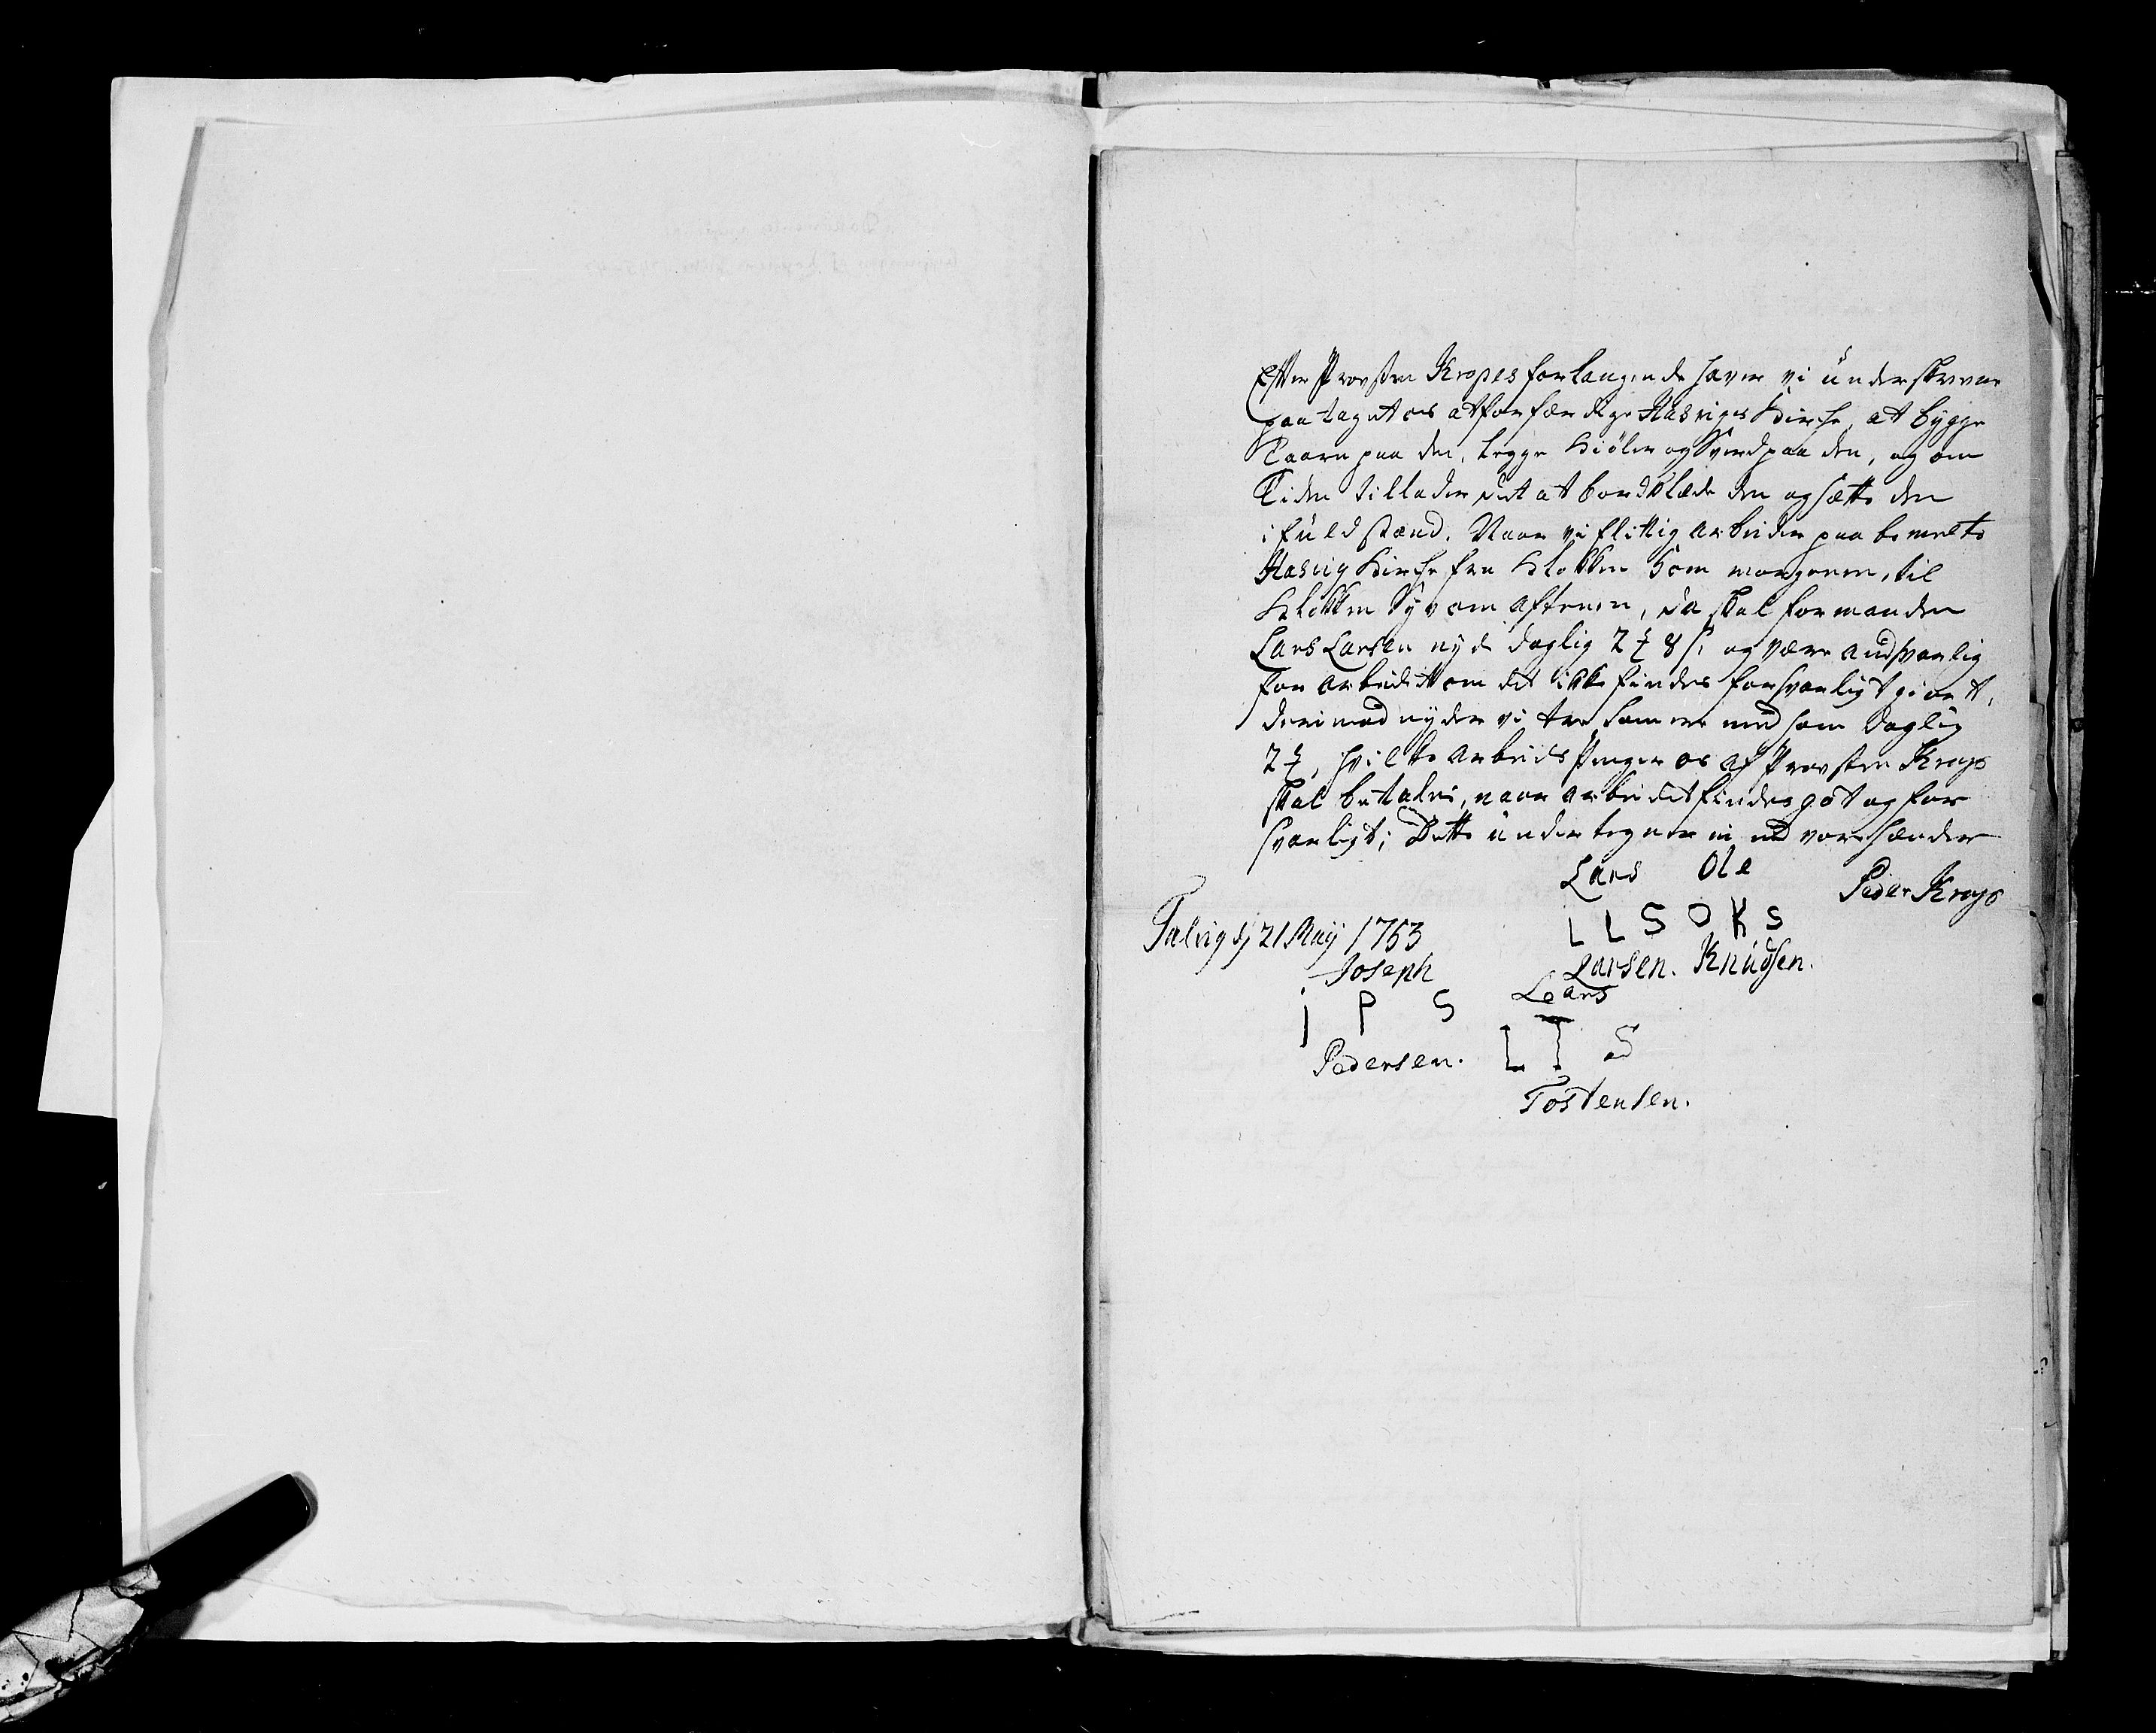 Efter Provsten Krogs forlangende haver vi underskrevne
paataget os at forfærdige Hasvigs Kirke, at bygge
Taarn paa den, legge Kiøler og Sverd paa den, og om
Tiden tillader det at bordklæde den og sætte den
i fuld stand. Naar vi flittig arbeider paa bemelte
Hasvig Kirke fra Klokken 5 om morgenen, til
Klokken Syv om aftenen, da skal formanden
Lars Larsen nyde daglig 2 ℥ 8 ß, og være andsvarlig
for arbeidet om det ikke findes forsvarligt giort,
derimod nyder vi tre som ere med ham daglig
2 ℥, hvilke arbeids Penger os af Provsten Krog
skal betales, naar arbeidet findes got og for
svarligt; Dette undertegner vi med vore hænder
Lars Ole
Peder Krog
Talvig d 21 Maij 1753
L L S O K S
Joseph
Larsen. Knudsen.
I P S
Lars
Pedersen.
L T S
Tostensen.